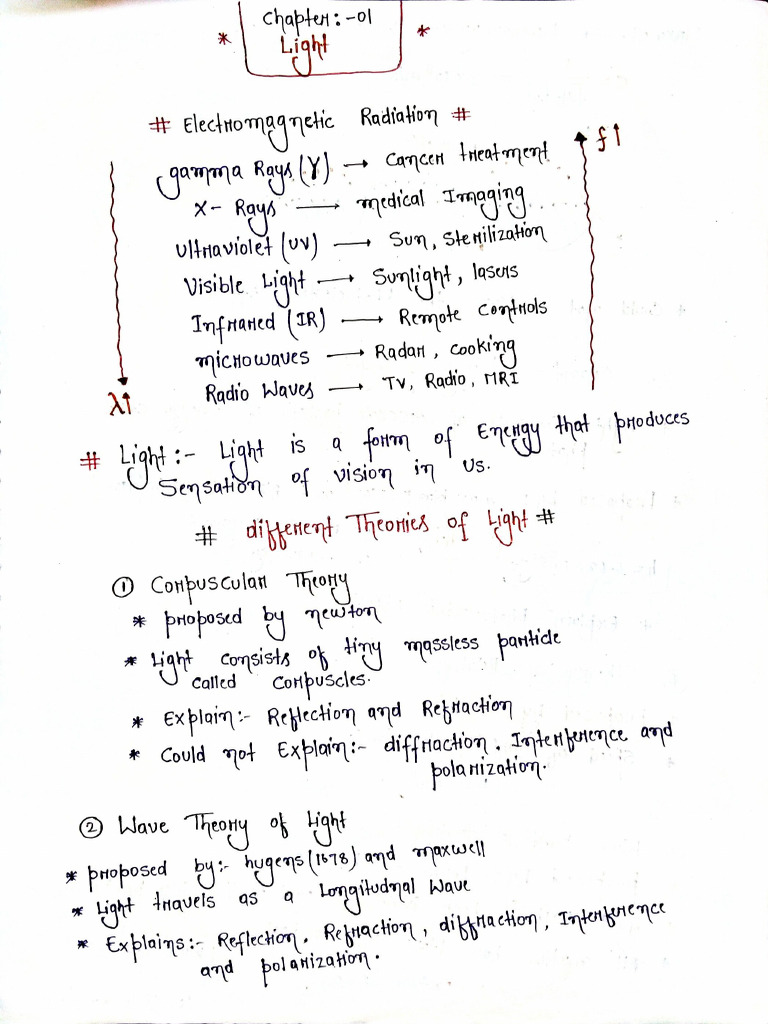 Chapter:-01
* Light *
# Electromagnetic Radiation #
f↑
gamma Rays (γ) → Cancer treatment
X- Rays → medical Imaging
Ultraviolet (UV) → Sun, Sterilization
Visible Light → Sunlight, lasers
Infrared (IR) → Remote controls
microwaves → Radar, cooking
Radio Waves → TV, Radio, MRI
λ↑
# Light:- Light is a form of Energy that produces
Sensation of vision in us.
# different Theories of Light #
① Corpuscular Theory
* proposed by newton
* Light consists of tiny massless particle
called corpuscles.
* Explain:- Reflection and Refraction
* Could not Explain:- diffraction. Interference and
polarization.
② Wave Theory of Light
* proposed by:- hugens (1678) and maxwell
* Light travels as a Longitudnal Wave
* Explains:- Reflection. Refraction, diffraction, Interference
and polarization.